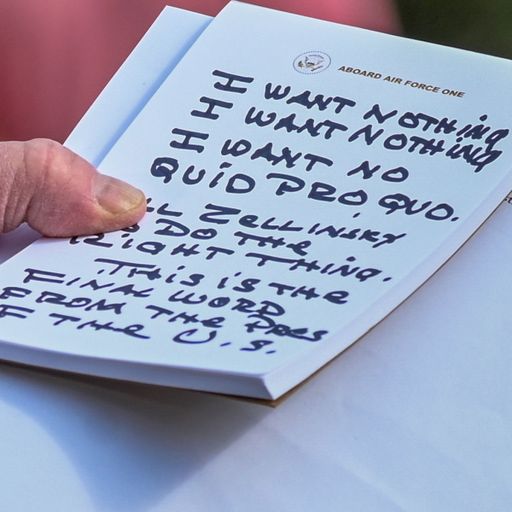 ABOARD AIR FORCE ONE
I WANT NOTHING
I WANT NOTHING
I WANT NO
QUID PRO QUO.
LL ZELLINSKY
O DO THE
RIGHT THING.
THIS IS THE
FINAL WORD
FROM THE PRES
F THE U.S.